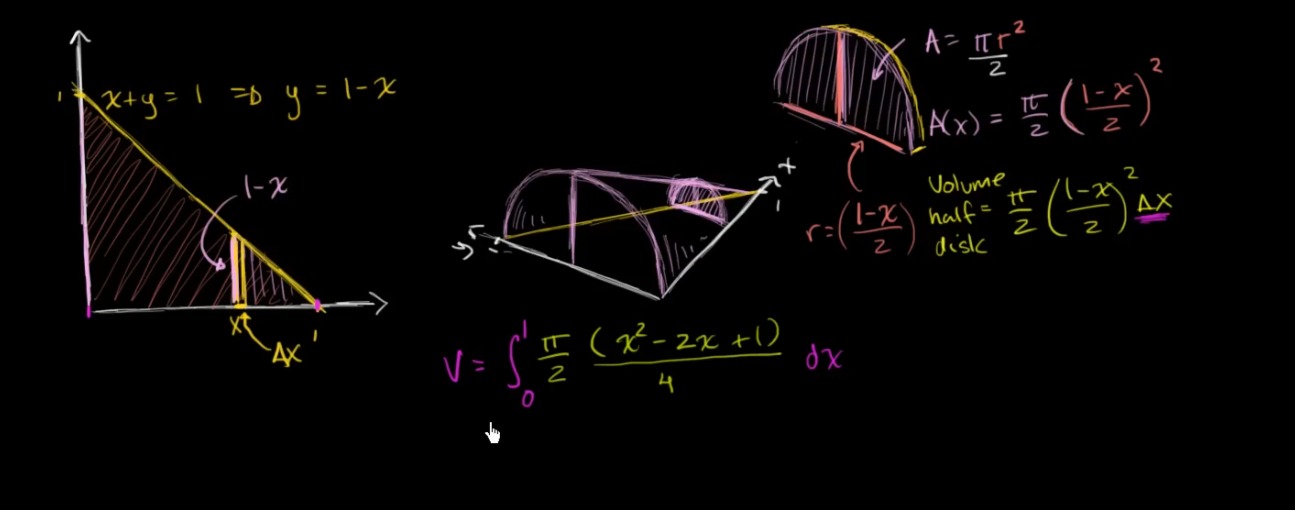 1
x+y = 1 ⇒ y = 1-x
1-x
x
Δx
1
x
1
A = πr²/2
A(x) = π/2 ((1-x)/2)²
r = ((1-x)/2)
Volume
half = π/2 ((1-x)/2)² Δx
disk
V = ∫₀¹ π/2 (x² - 2x + 1)/4 dx